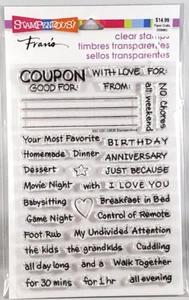 STAMPENDOUS!
$14.99
Fran's
clear stamps
timbres transparentes
timbres transparentes
COUPON WITH LOVE FOR:
GOOD FOR: FROM:
all weekend
No Chores
Your Most Favorite BIRTHDAY
Homemade Dinner ANNIVERSARY
Dessert JUST BECAUSE
Movie Night with I LOVE YOU
Babysitting Breakfast in Bed
Game Night Control of Remote
Foot Rub My Undivided Attention
the kids the grandkids Cuddling
all day long and a Walk Together
for 30 mins for 1 hr all evening